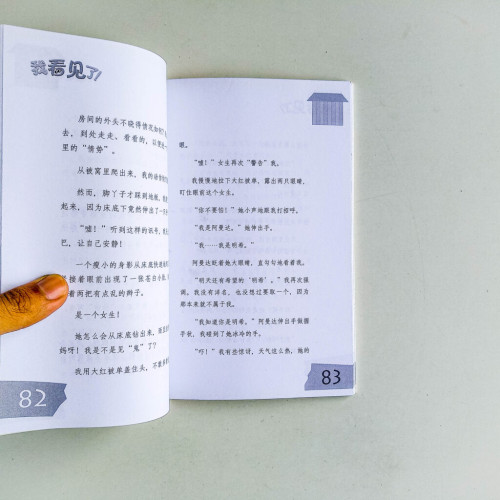 我看见了!
房间的外头不晓得情况如何了
去，到处走走、看看的，以便
里的“情势”。
从被窝里爬出来，我的
然而，脚丫子才踩到地板，
起来，因为床底下竟然伸出了一
“嘘！”听到这样的讯号，我
巴，让自己安静！
一个瘦小的身影从床底
接着眼前出现了一张苍白小
着两把有点乱的辫子。
是一个女生！
她怎么会从床底钻出来，
妈呀！我是不是见“鬼”了？
我用大红被单盖住头，不敢
82
眼。
“嘘！”女生再次“警告”我。
我慢慢地拉下大红被单，露出两只眼睛，
盯住眼前这个女生。
“你不要怕！”她小声地跟我打招呼。
“我是阿曼达。”她伸出手。
“我……我是明希。”
阿曼达眨着她大眼睛，直勾勾地看着我。
“明天还有希望的‘明希’。”我再次强
调。我没有洋名，也没想过要取一个，因为
那本来就不属于我。
“我知道你是明希。”阿曼达伸出手做圈
子状，我碰到了她冰冷的手。
“吓！”我有些惊讶，天气这么热，她的
83